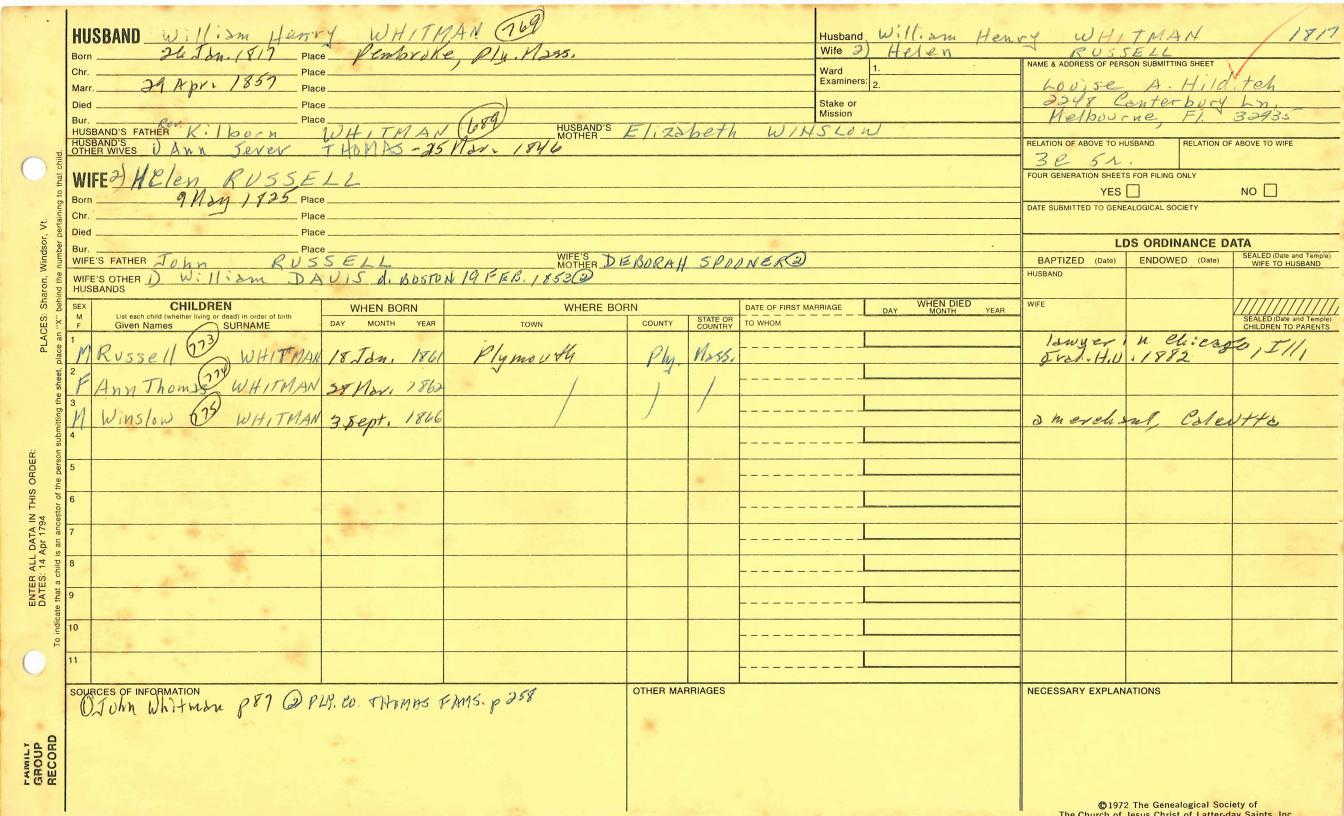 HUSBAND William Henry WHITMAN 769
Born 26 Jan. 1817 Place Pembroke, Ply. Mass.
Chr. Place
Marr. 29 Apr. 1857 Place
Died Place
Bur. Place
HUSBAND'S FATHER Rev. Kilborn WHITMAN 689 HUSBAND'S MOTHER Elizabeth WINSLOW
HUSBAND'S OTHER WIVES 1) Ann Sever THOMAS - 25 Mar. 1846
WIFE 2) HElen RUSSELL
Born 9 May 1825 Place
Chr. Place
Died Place
Bur. Place
WIFE'S FATHER John RUSSELL WIFE'S MOTHER DEBORAH SPOONER ②
WIFE'S OTHER HUSBANDS 1) William DAVIS d. BOSTON 19 FEB. 1853 ②
Husband William Henry WHITMAN 1817
Wife 2) Helen RUSSELL
Ward Examiners: 1.
2.
Stake or Mission
NAME & ADDRESS OF PERSON SUBMITTING SHEET
Louise A. Hilditch
2248 Canterbury Ln.
Melbourne, Fl. 32935
RELATION OF ABOVE TO HUSBAND RELATION OF ABOVE TO WIFE
3c 5r.
FOUR GENERATION SHEETS FOR FILING ONLY
YES NO
DATE SUBMITTED TO GENEALOGICAL SOCIETY
LDS ORDINANCE DATA
BAPTIZED (Date) ENDOWED (Date) SEALED (Date and Temple) WIFE TO HUSBAND
HUSBAND
WIFE
SEALED (Date and Temple) CHILDREN TO PARENTS
SEX M F CHILDREN WHEN BORN WHERE BORN DATE OF FIRST MARRIAGE WHEN DIED
List each child (whether living or dead) in order of birth
Given Names SURNAME DAY MONTH YEAR TOWN COUNTY STATE OR COUNTRY TO WHOM DAY MONTH YEAR
1 M Russell 773 WHITMAN 18 Jan. 1861 Plymouth Ply. Mass. lawyer in Chicago, Ill,
Grad. H.U. 1882
2 F Ann Thomas 774 WHITMAN 28 Mar. 1862 / ) /
3 M Winslow 775 WHITMAN 3 Sept. 1866 / ) / a merchant, Calcutta
4
5
6
7
8
9
10
11
SOURCES OF INFORMATION
① John Whitman p 87 ② PLY. CO. THOMAS FAMS. p 258
OTHER MARRIAGES
NECESSARY EXPLANATIONS
©1972 The Genealogical Society of
The Church of Jesus Christ of Latter-day Saints, Inc.
PLACES: Sharon, Windsor, Vt.
ENTER ALL DATA IN THIS ORDER:
DATES: 14 Apr 1794
To indicate that a child is an ancestor of the person submitting the sheet, place an "X" behind the number pertaining to that child.
FAMILY
GROUP
RECORD